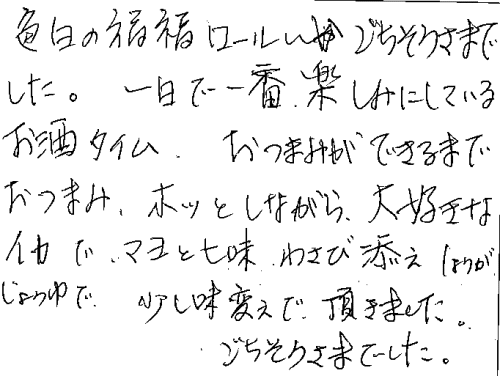 色白の福福ロールいか ごちそうさまで
した。 一日で一番、楽しみにしている
お酒タイム、 おつまみができるまで
おつまみ、ホッとしながら、大好きな
イカで、マヨと七味、わさび添え しょうが
じょうゆで、少し味変えで、頂きました。
ごちそうさまでーした。